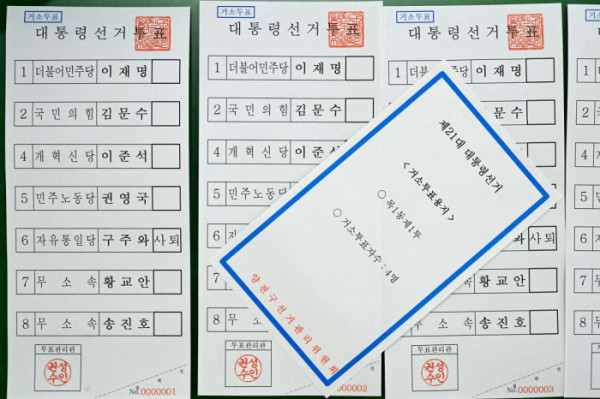 거소투표
대통령선거투표
1 더불어민주당 이재명
2 국민의힘 김문수
4 개혁신당 이준석
5 민주노동당 권영국
6 자유통일당 구주와 사퇴
7 무소속 황교안
8 무소속 송진호
투표관리관
No.0000001
거소투표
대통령선거투표
1 더불어민주당 이재명
2 국민의힘 김문수
4 개혁신당 이준석
5 민주노동당
6
7
8 무소
투표관리관
0000002
거소투표
대통령선거투표
1 더불어민주당 이재명
김문수
이준석
사퇴
황교안
송진호
No.0000003
제21대 대통령선거
< 거소투표용지 >
○ 목1동제1투
○ 거소투표자수 : 4명
양천구선거관리위원회